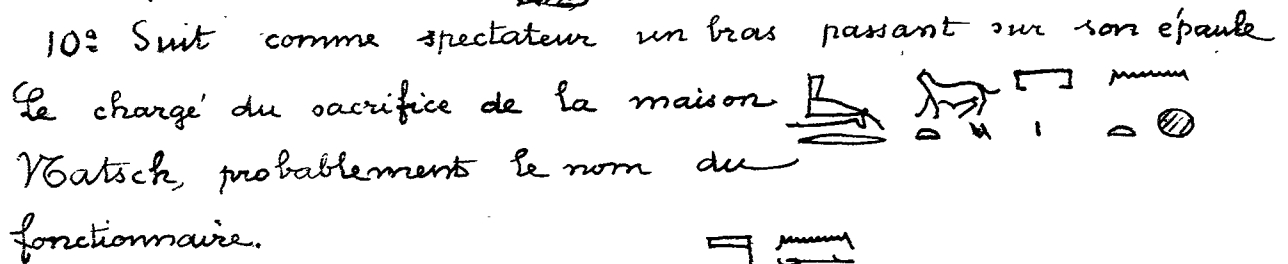 10º Suit comme spectateur un bras passant sur son épaule
Le chargé du sacrifice de la maison
Natsch, probablement le nom du
fonctionnaire.